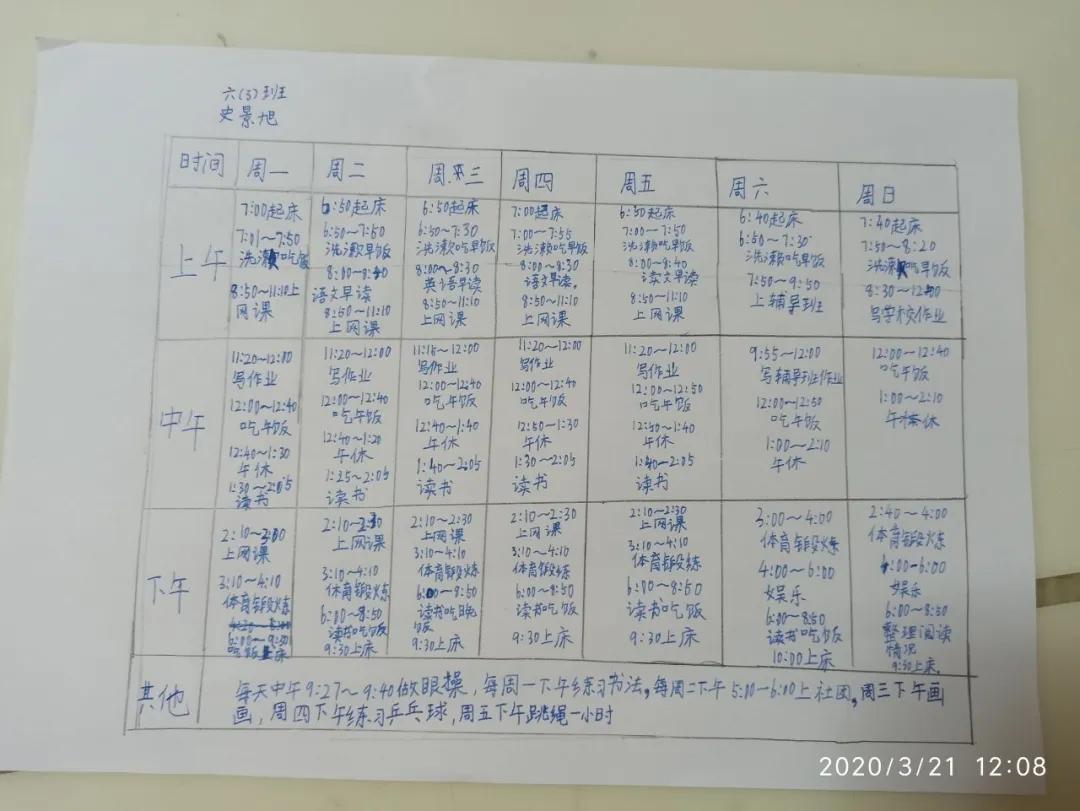 六(3)班
史景旭
时间 周一 周二 周三 周四 周五 周六 周日
上午
7:00起床
7:01~7:50
洗漱吃饭
8:50~11:10上
网课
6:50起床
6:50~7:50
洗漱早饭
8:00~8:40
语文早读
8:50~11:10
上网课
6:50起床
6:50~7:30
洗漱吃早饭
8:00~8:30
英语早读
8:50~11:10
上网课
7:00起床
7:00~7:55
洗漱吃早饭
8:00~8:30
语文早读。
8:50~11:10
上网课
6:50起床
7:00~7:50
洗漱吃早饭
8:00~8:40
语文早读
8:50~11:10
上网课
6:40起床
6:50~7:30
洗漱吃早饭
7:50~9:50
上辅导班
7:40起床
7:50~8:20
洗漱吃早饭
8:30~12:00
写学校作业
中午
11:20~12:00
写作业
12:00~12:40
吃午饭
12:40~1:30
午休
1:30~2:05
读书
11:20~12:00
写作业
12:00~12:40
吃午饭
12:40~1:20
午休
1:25~2:05
读书
11:15~12:00
写作业
12:00~12:40
吃午饭
12:40~1:40
午休
1:40~2:05
读书
11:20~12:00
写作业
12:00~12:40
吃午饭
12:50~1:30
午休
1:30~2:05
读书
11:20~12:00
写作业
12:00~12:50
吃午饭
12:50~1:40
午休
1:40~2:05
读书
9:55~12:00
写辅导班作业
12:00~12:50
吃午饭
1:00~2:10
午休
12:00~12:40
吃午饭
1:00~2:10
午休
下午
2:10~2:30
上网课
3:10~4:10
体育锻炼
6:00~9:30
吃饭上床
2:10~2:30
上网课
3:10~4:10
体育锻炼
6:00~8:50
读书吃饭
9:30上床
2:10~2:30
上网课
3:10~4:10
体育锻炼
6:00~8:50
读书吃晚
饭
9:30上床
2:10~2:30
上网课
3:10~4:10
体育锻炼
6:00~8:50
读书吃饭
9:30上床
2:10~2:30
上网课
3:10~4:10
体育锻炼
6:00~8:50
读书吃饭
9:30上床
3:00~4:00
体育锻炼
4:00~6:00
娱乐
6:00~8:50
读书吃饭
10:00上床
2:40~4:00
体育锻炼
4:00-6:00
娱乐
6:00~8:50
整理阅读
情况
9:30上床。
其他
每天中午9:27~9:40做眼操，每周一下午练习书法，每周二下午5:00-6:00上社团，周三下午画
画，周四下午练习乒乓球，周五下午跳绳一小时
2020/3/21 12:08